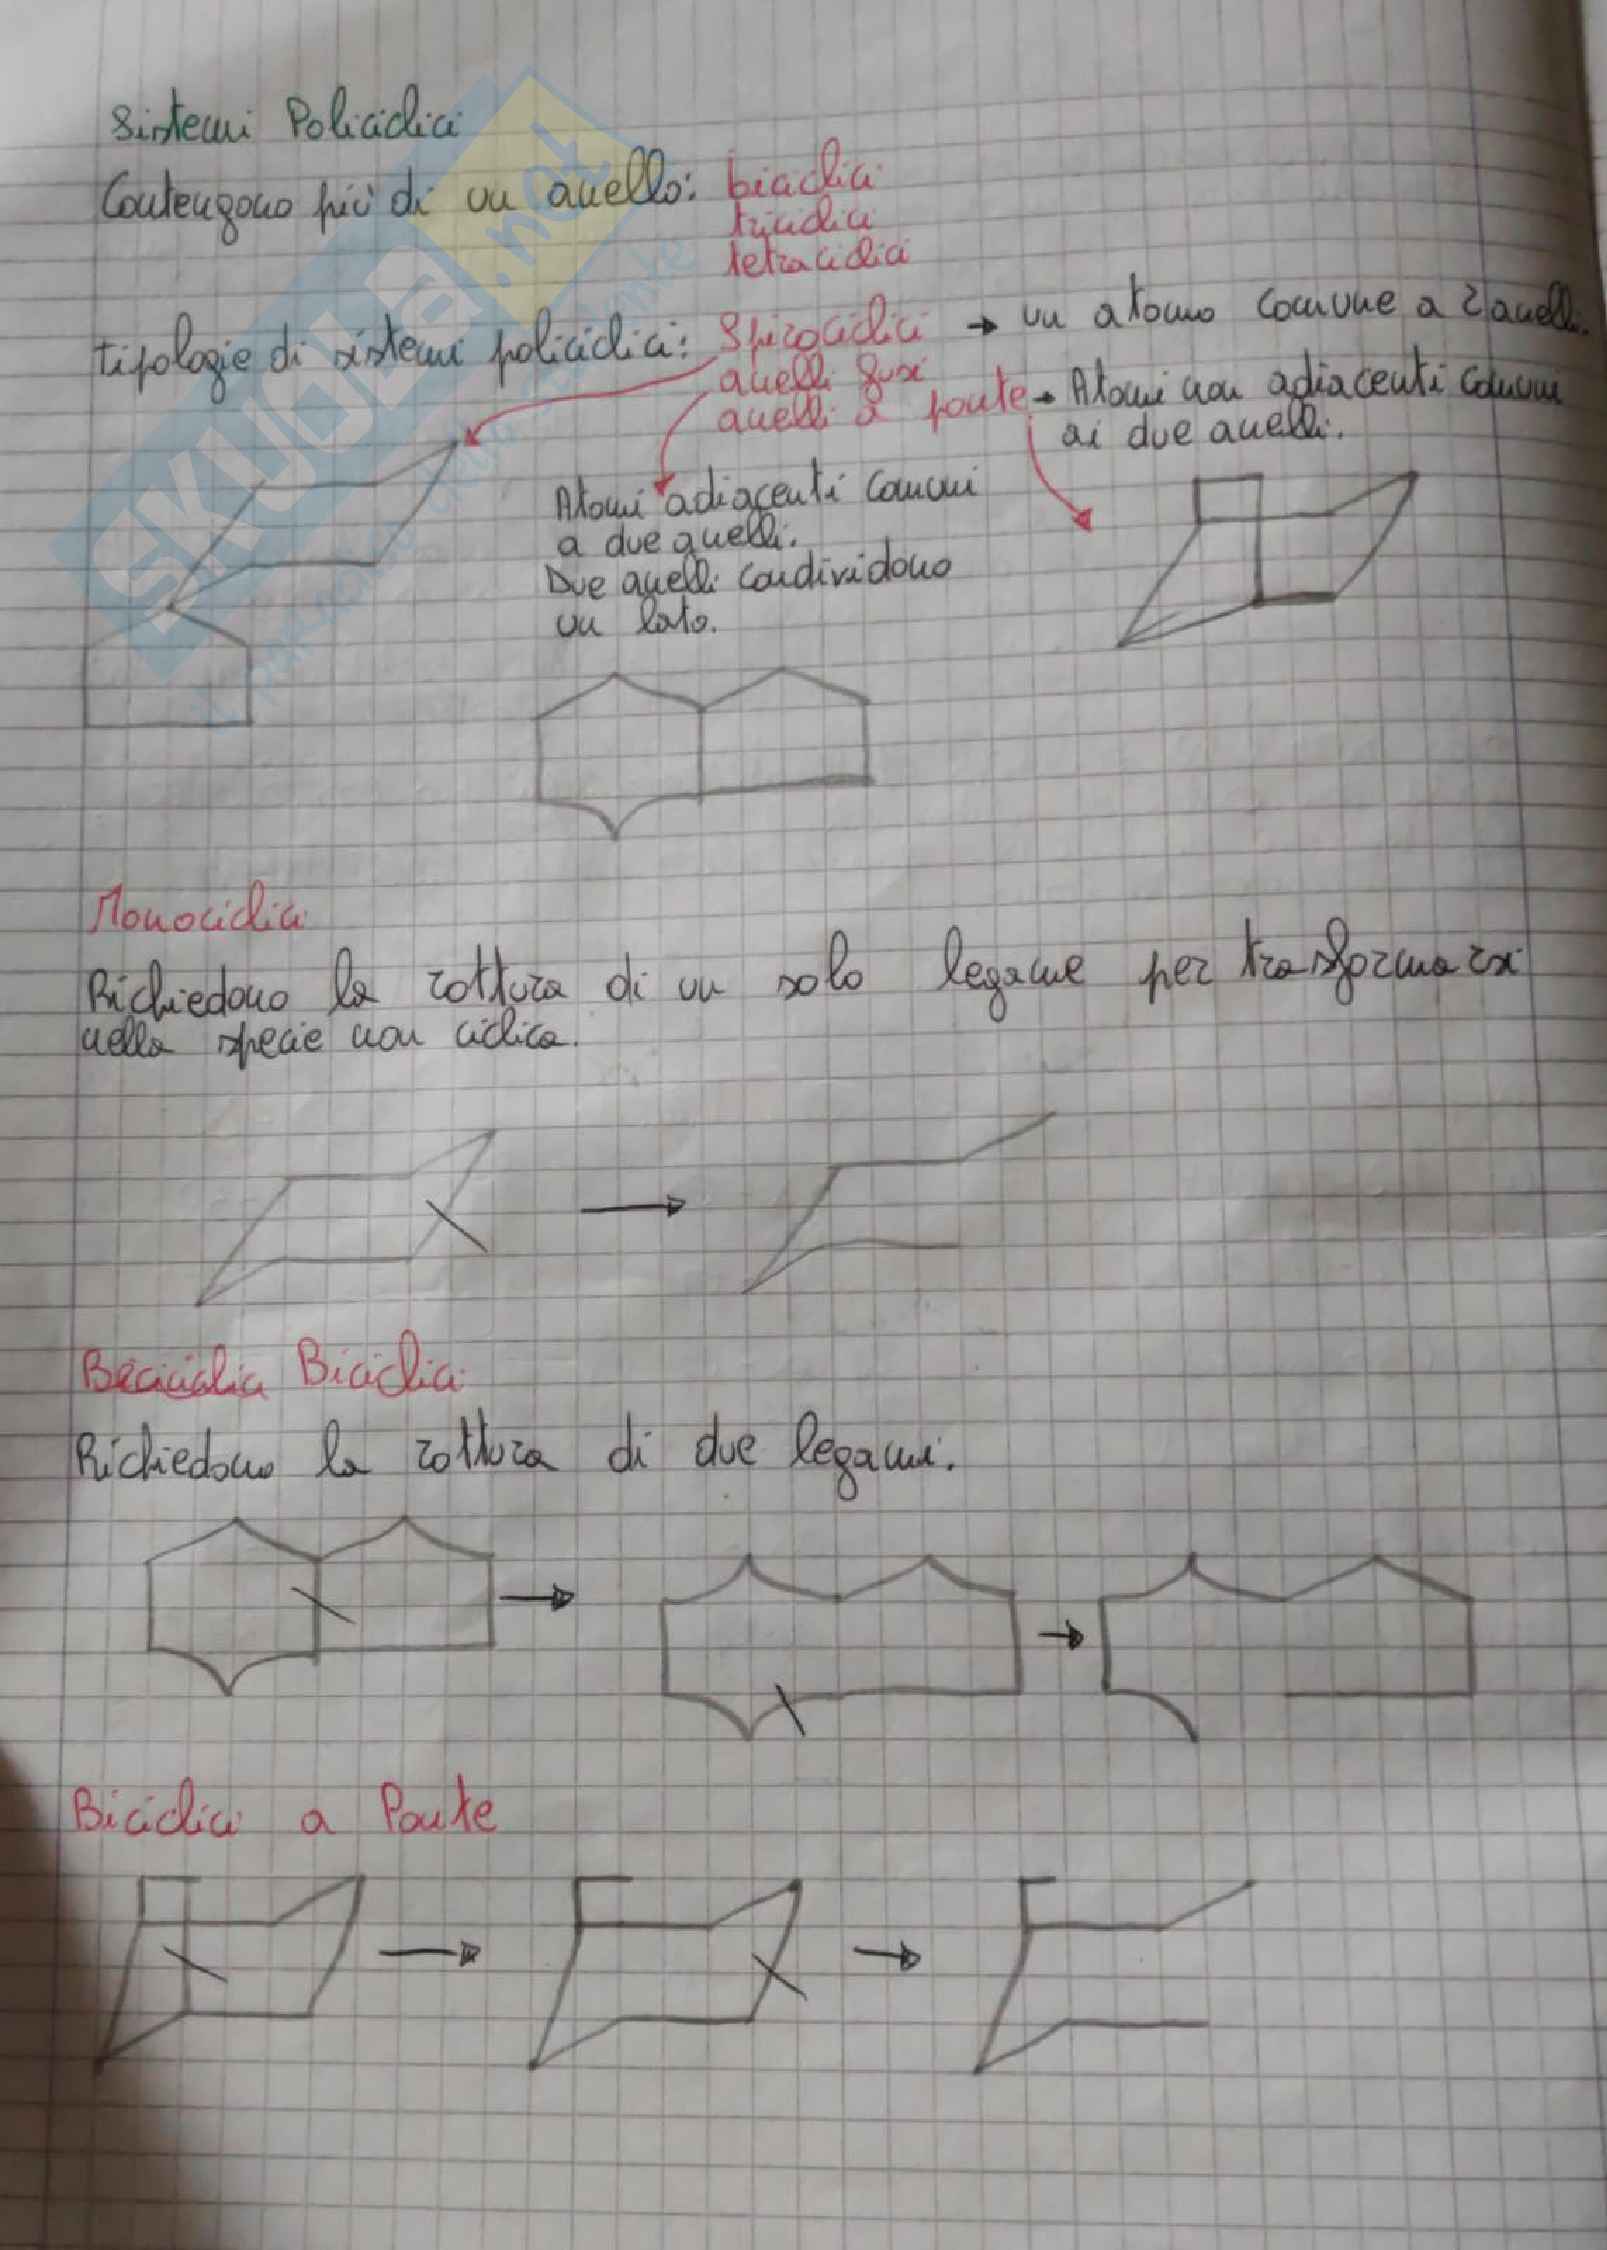 Sistemi Policiclici
Contengono più di un anello: biciclici
triciclici
tetraciclici
Tipologie di sistemi policiclici: Spirociclici → un atomo comune a 2 anelli.
anelli fusi
anelli a ponte → Atomi non adiacenti comuni
ai due anelli.
Atomi adiacenti comuni
a due anelli.
Due anelli condividono
un lato.
Monociclici
Richiedono la rottura di un solo legame per trasformarsi
nella specie non ciclica.
Biciclici
Richiedono la rottura di due legami.
Biciclici a Ponte
SKUOLA.net